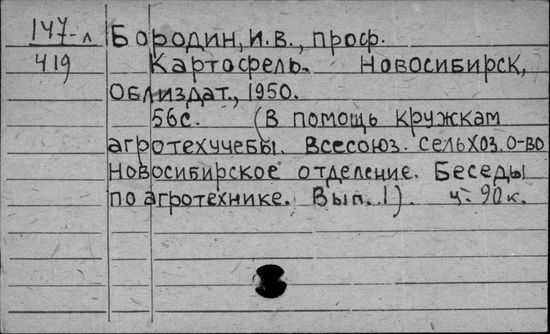 147-л Бородин, И.В., проф.
419 Картофель. Новосибирск,
Облиздат., 1950.
56с. (В помощь кружкам
агротехучебы. Всесоюз. сельхоз. о-во
Новосибирское отделение. Беседы
по агротехнике. Вып. 1). ц. 90к.